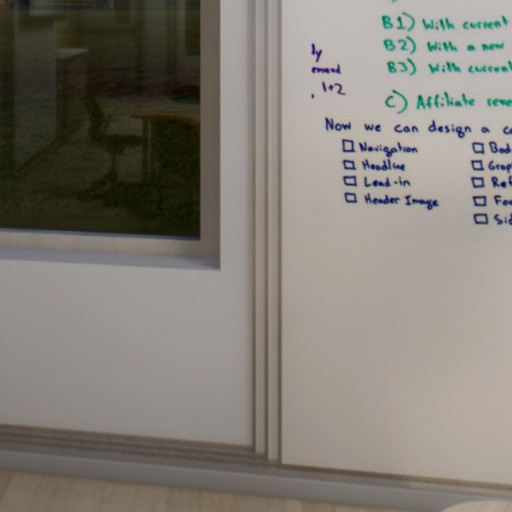 B1) With current
B2) With a new
B3) With current
ly
emend
, 1+2
C) Affiliate
Now we can design a
☐ Navigation
☐ Headline
☐ Lead-in
☐ Header Image
☐ Bod
☐ Grap
☐ Ref
☐ Foo
☐ Sid